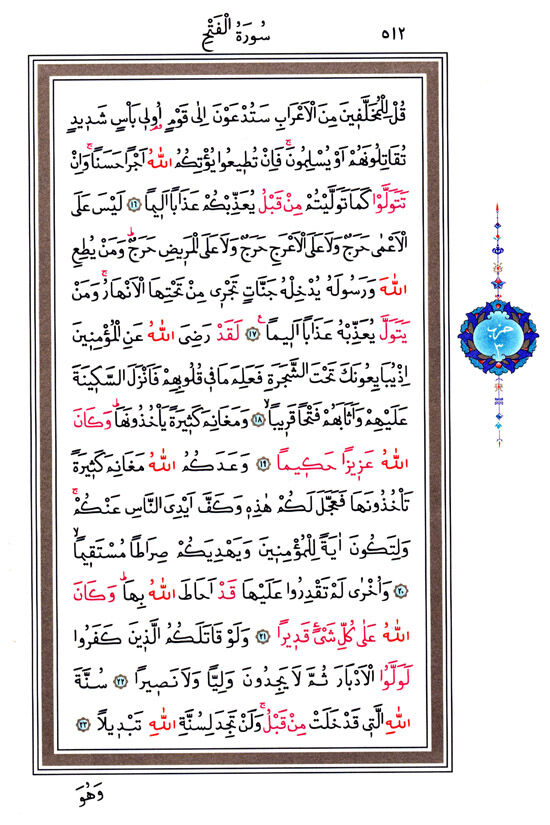 ٥١٢
سُورَةُ الْفَتْحِ
قُلْ لِلْمُخَلَّفٖينَ مِنَ الْاَعْرَابِ سَتُدْعَوْنَ اِلٰى قَوْمٍ اُو۬لٖى بَاْسٍ شَدٖيدٍ
تُقَاتِلُونَهُمْ اَوْ يُسْلِمُونَۚ فَاِنْ تُطٖيعُوا يُؤْتِكُمُ اللّٰهُ اَجْرًا حَسَنًاۚ وَاِنْ
تَتَوَلَّوْا كَمَا تَوَلَّيْتُمْ مِنْ قَبْلُ يُعَذِّبْكُمْ عَذَابًا اَلٖيمًا ﴿١٦﴾ لَيْسَ عَلَى
الْاَعْمٰى حَرَجٌ وَلَا عَلَى الْاَعْرَجِ حَرَجٌ وَلَا عَلَى الْمَرٖيضِ حَرَجٌۜ وَمَنْ يُطِعِ
اللّٰهَ وَرَسُولَهُ يُدْخِلْهُ جَنَّاتٍ تَجْرٖى مِنْ تَحْتِهَا الْاَنْهَارُۚ وَمَنْ
يَتَوَلَّ يُعَذِّبْهُ عَذَابًا اَلٖيمًاࣖ ﴿١٧﴾ لَقَدْ رَضِىَ اللّٰهُ عَنِ الْمُؤْمِنٖينَ
اِذْ يُبَايِعُونَكَ تَحْتَ الشَّجَرَةِ فَعَلِمَ مَا فٖى قُلُوبِهِمْ فَاَنْزَلَ السَّكٖينَةَ
عَلَيْهِمْ وَاَثَابَهُمْ فَتْحًا قَرٖيبًاۙ ﴿١٨﴾ وَمَغَانِمَ كَثٖيرَةً يَاْخُذُونَهَاۜ وَكَانَ
اللّٰهُ عَزٖيزًا حَكٖيمًا ﴿١٩﴾ وَعَدَكُمُ اللّٰهُ مَغَانِمَ كَثٖيرَةً
تَاْخُذُونَهَا فَعَجَّلَ لَكُمْ هٰذِهٖ وَكَفَّ اَيْدِىَ النَّاسِ عَنْكُمْۚ
وَلِتَكُونَ اٰيَةً لِلْمُؤْمِنٖينَ وَيَهْدِيَكُمْ صِرَاطًا مُسْتَقٖيمًاۙ
﴿٢٠﴾ وَاُخْرٰى لَمْ تَقْدِرُوا عَلَيْهَا قَدْ اَحَاطَ اللّٰهُ بِهَاۜ وَكَانَ
اللّٰهُ عَلٰى كُلِّ شَىْءٍ قَدٖيرًا ﴿٢١﴾ وَلَوْ قَاتَلَكُمُ الَّذٖينَ كَفَرُوا
لَوَلَّوُا الْاَدْبَارَ ثُمَّ لَا يَجِدُونَ وَلِيًّا وَلَا نَصٖيرًا ﴿٢٢﴾ سُنَّةَ
اللّٰهِ الَّتٖى قَدْ خَلَتْ مِنْ قَبْلُۚ وَلَنْ تَجِدَ لِسُنَّةِ اللّٰهِ تَبْدٖيلًا ﴿٢٣﴾
حزب
٣
وَهُوَ